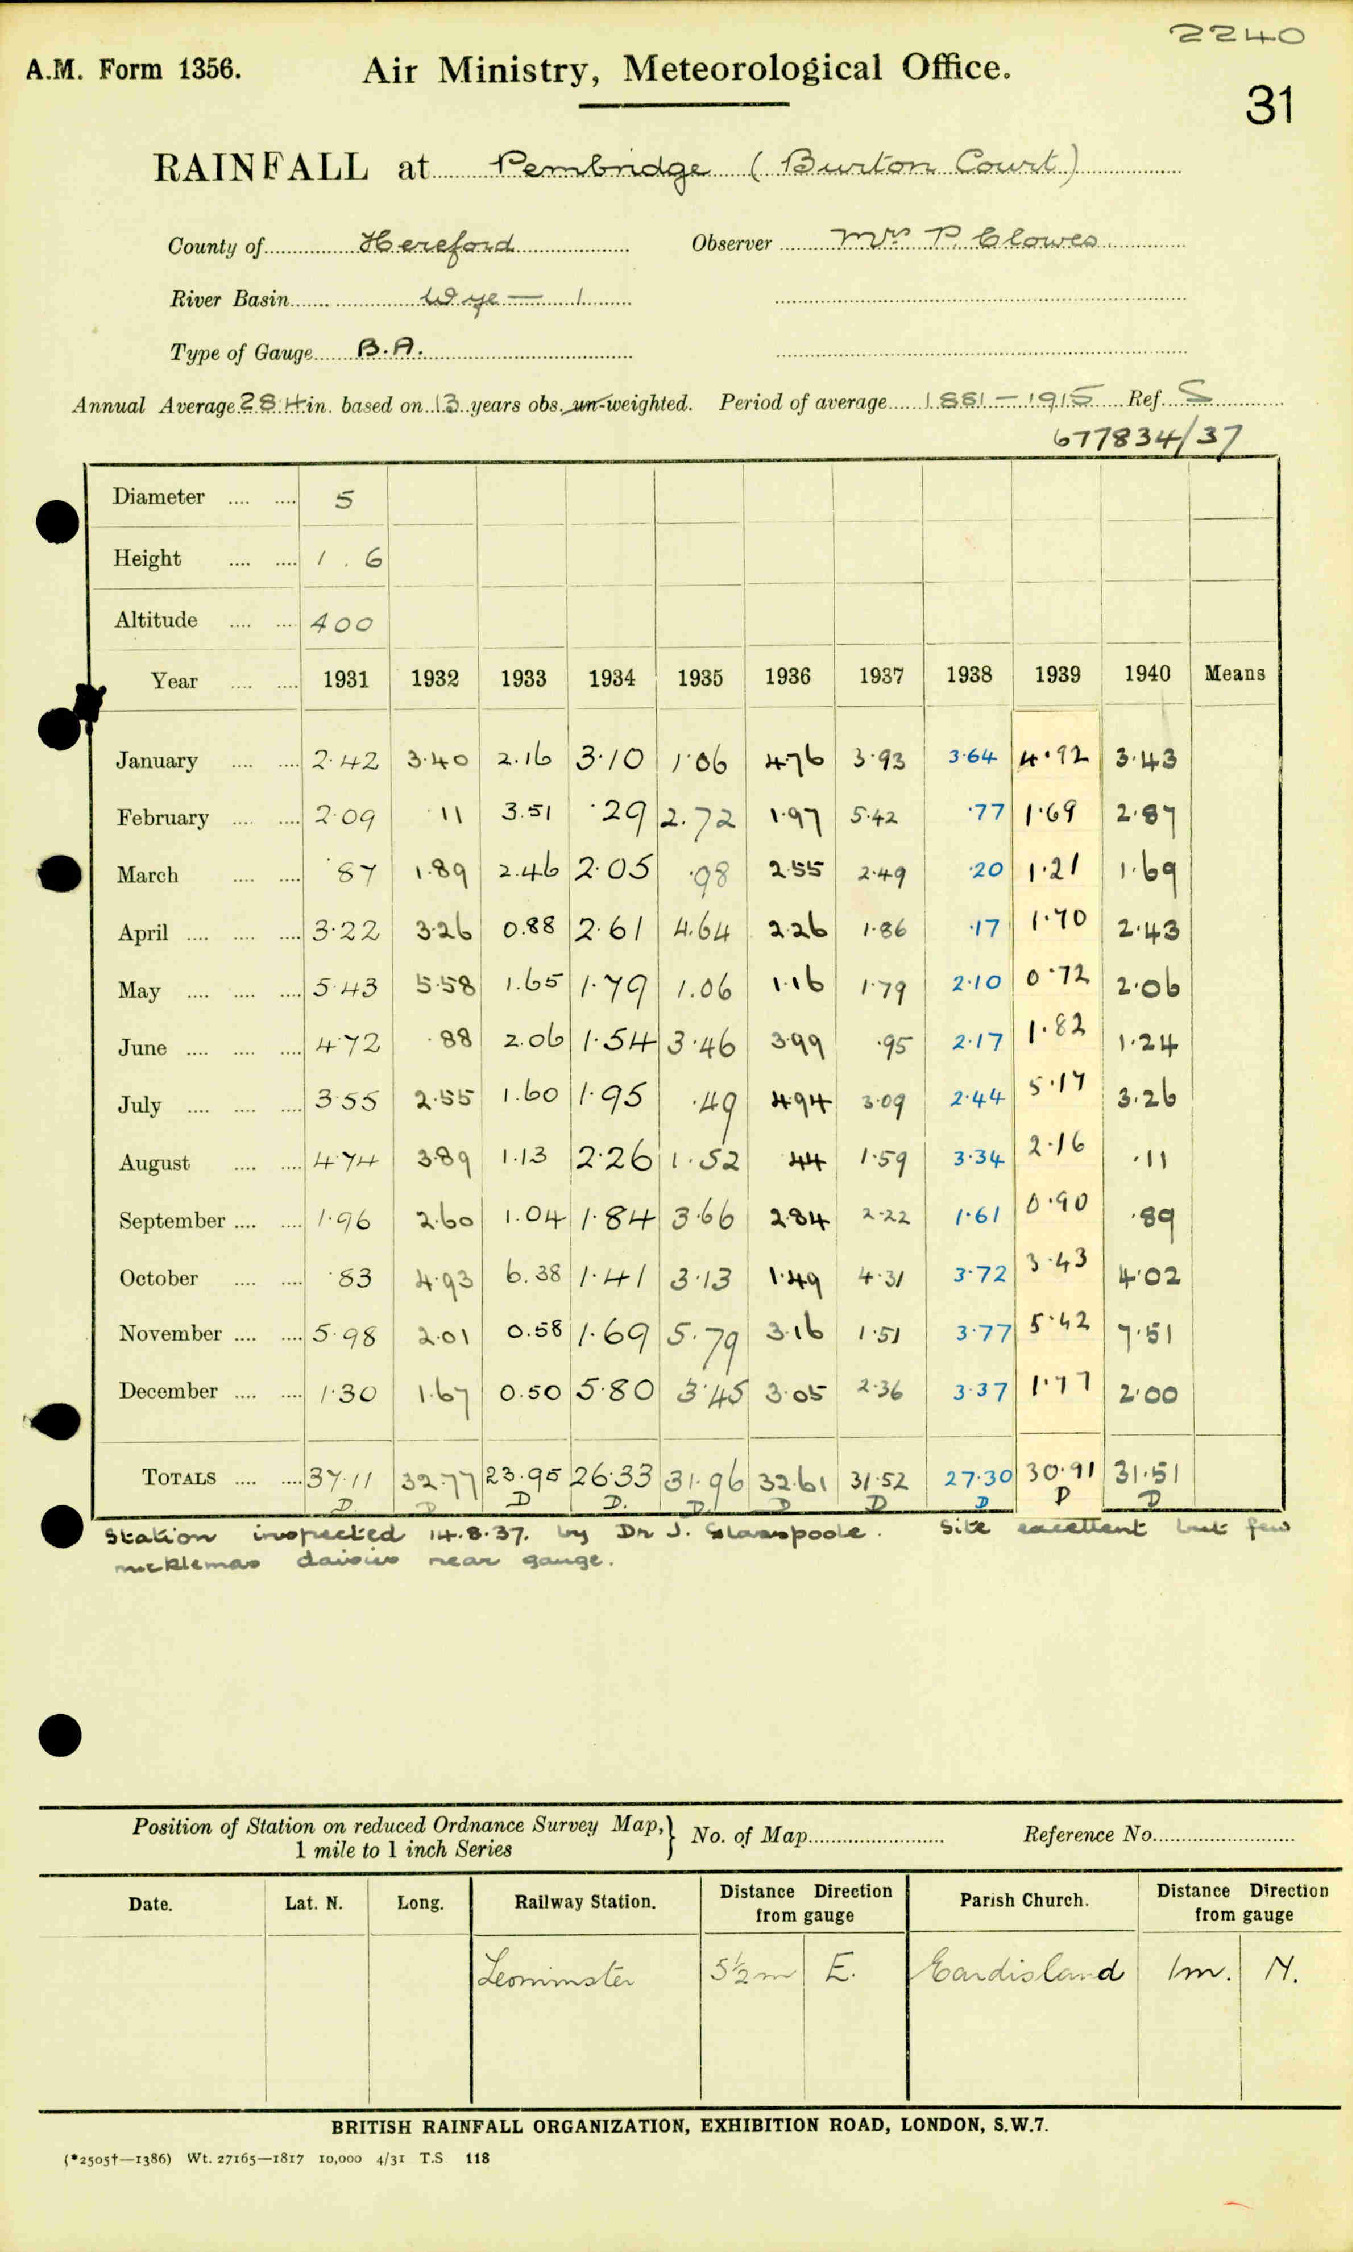 2240
A.M. Form 1356. Air Ministry, Meteorological Office.
31
RAINFALL at Pembridge (Burton Court)
County of Hereford Observer Mrs P. Clowes
River Basin Wye — 1
Type of Gauge B.A.
Annual Average 28.4 in. based on 13 years obs. un-weighted. Period of average 1881-1915 Ref. S
677834/37
Diameter .... .... 5
Height .... .... 1 . 6
Altitude .... .... 400
Year .... .... 1931 1932 1933 1934 1935 1936 1937 1938 1939 1940 Means
January .... .... 2.42 3.40 2.16 3.10 1.06 4.76 3.93 3.64 4.92 3.43
February .... .... 2.09 .11 3.51 .29 2.72 1.97 5.42 .77 1.69 2.87
March .... .... .87 1.89 2.46 2.05 .98 2.55 2.49 .20 1.21 1.69
April .... .... .... 3.22 3.26 0.88 2.61 4.64 2.26 1.86 .17 1.70 2.43
May .... .... .... 5.43 5.58 1.65 1.79 1.06 1.16 1.79 2.10 0.72 2.06
June .... .... .... 4.72 .88 2.06 1.54 3.46 3.99 .95 2.17 1.82 1.24
July .... .... .... 3.55 2.55 1.60 1.95 .49 4.94 3.09 2.44 5.17 3.26
August .... .... 4.74 3.89 1.13 2.26 1.52 .44 1.59 3.34 2.16 .11
September .... .... 1.96 2.60 1.04 1.84 3.66 2.84 2.22 1.61 0.90 .89
October .... .... .83 4.93 6.38 1.41 3.13 1.49 4.31 3.72 3.43 4.02
November .... .... 5.98 2.01 0.58 1.69 5.79 3.16 1.51 3.77 5.42 7.51
December .... .... 1.30 1.67 0.50 5.80 3.45 3.05 2.36 3.37 1.77 2.00
TOTALS .... .... 37.11 32.77 23.95 26.33 31.96 32.61 31.52 27.30 30.91 31.51
D D D D. D. D D D D D
Station inspected 14.8.37. by Dr J. Glasspoole. Site excellent but few
micklemas daisies near gauge.
Position of Station on reduced Ordnance Survey Map,} No. of Map Reference No.
1 mile to 1 inch Series
Date. Lat. N. Long. Railway Station. Distance Direction from gauge Parish Church. Distance Direction from gauge
Leominster 5½m E. Eardisland 1m. N.
BRITISH RAINFALL ORGANIZATION, EXHIBITION ROAD, LONDON, S.W.7.
(*2505†—1386) Wt. 27165—1817 10,000 4/31 T.S 118